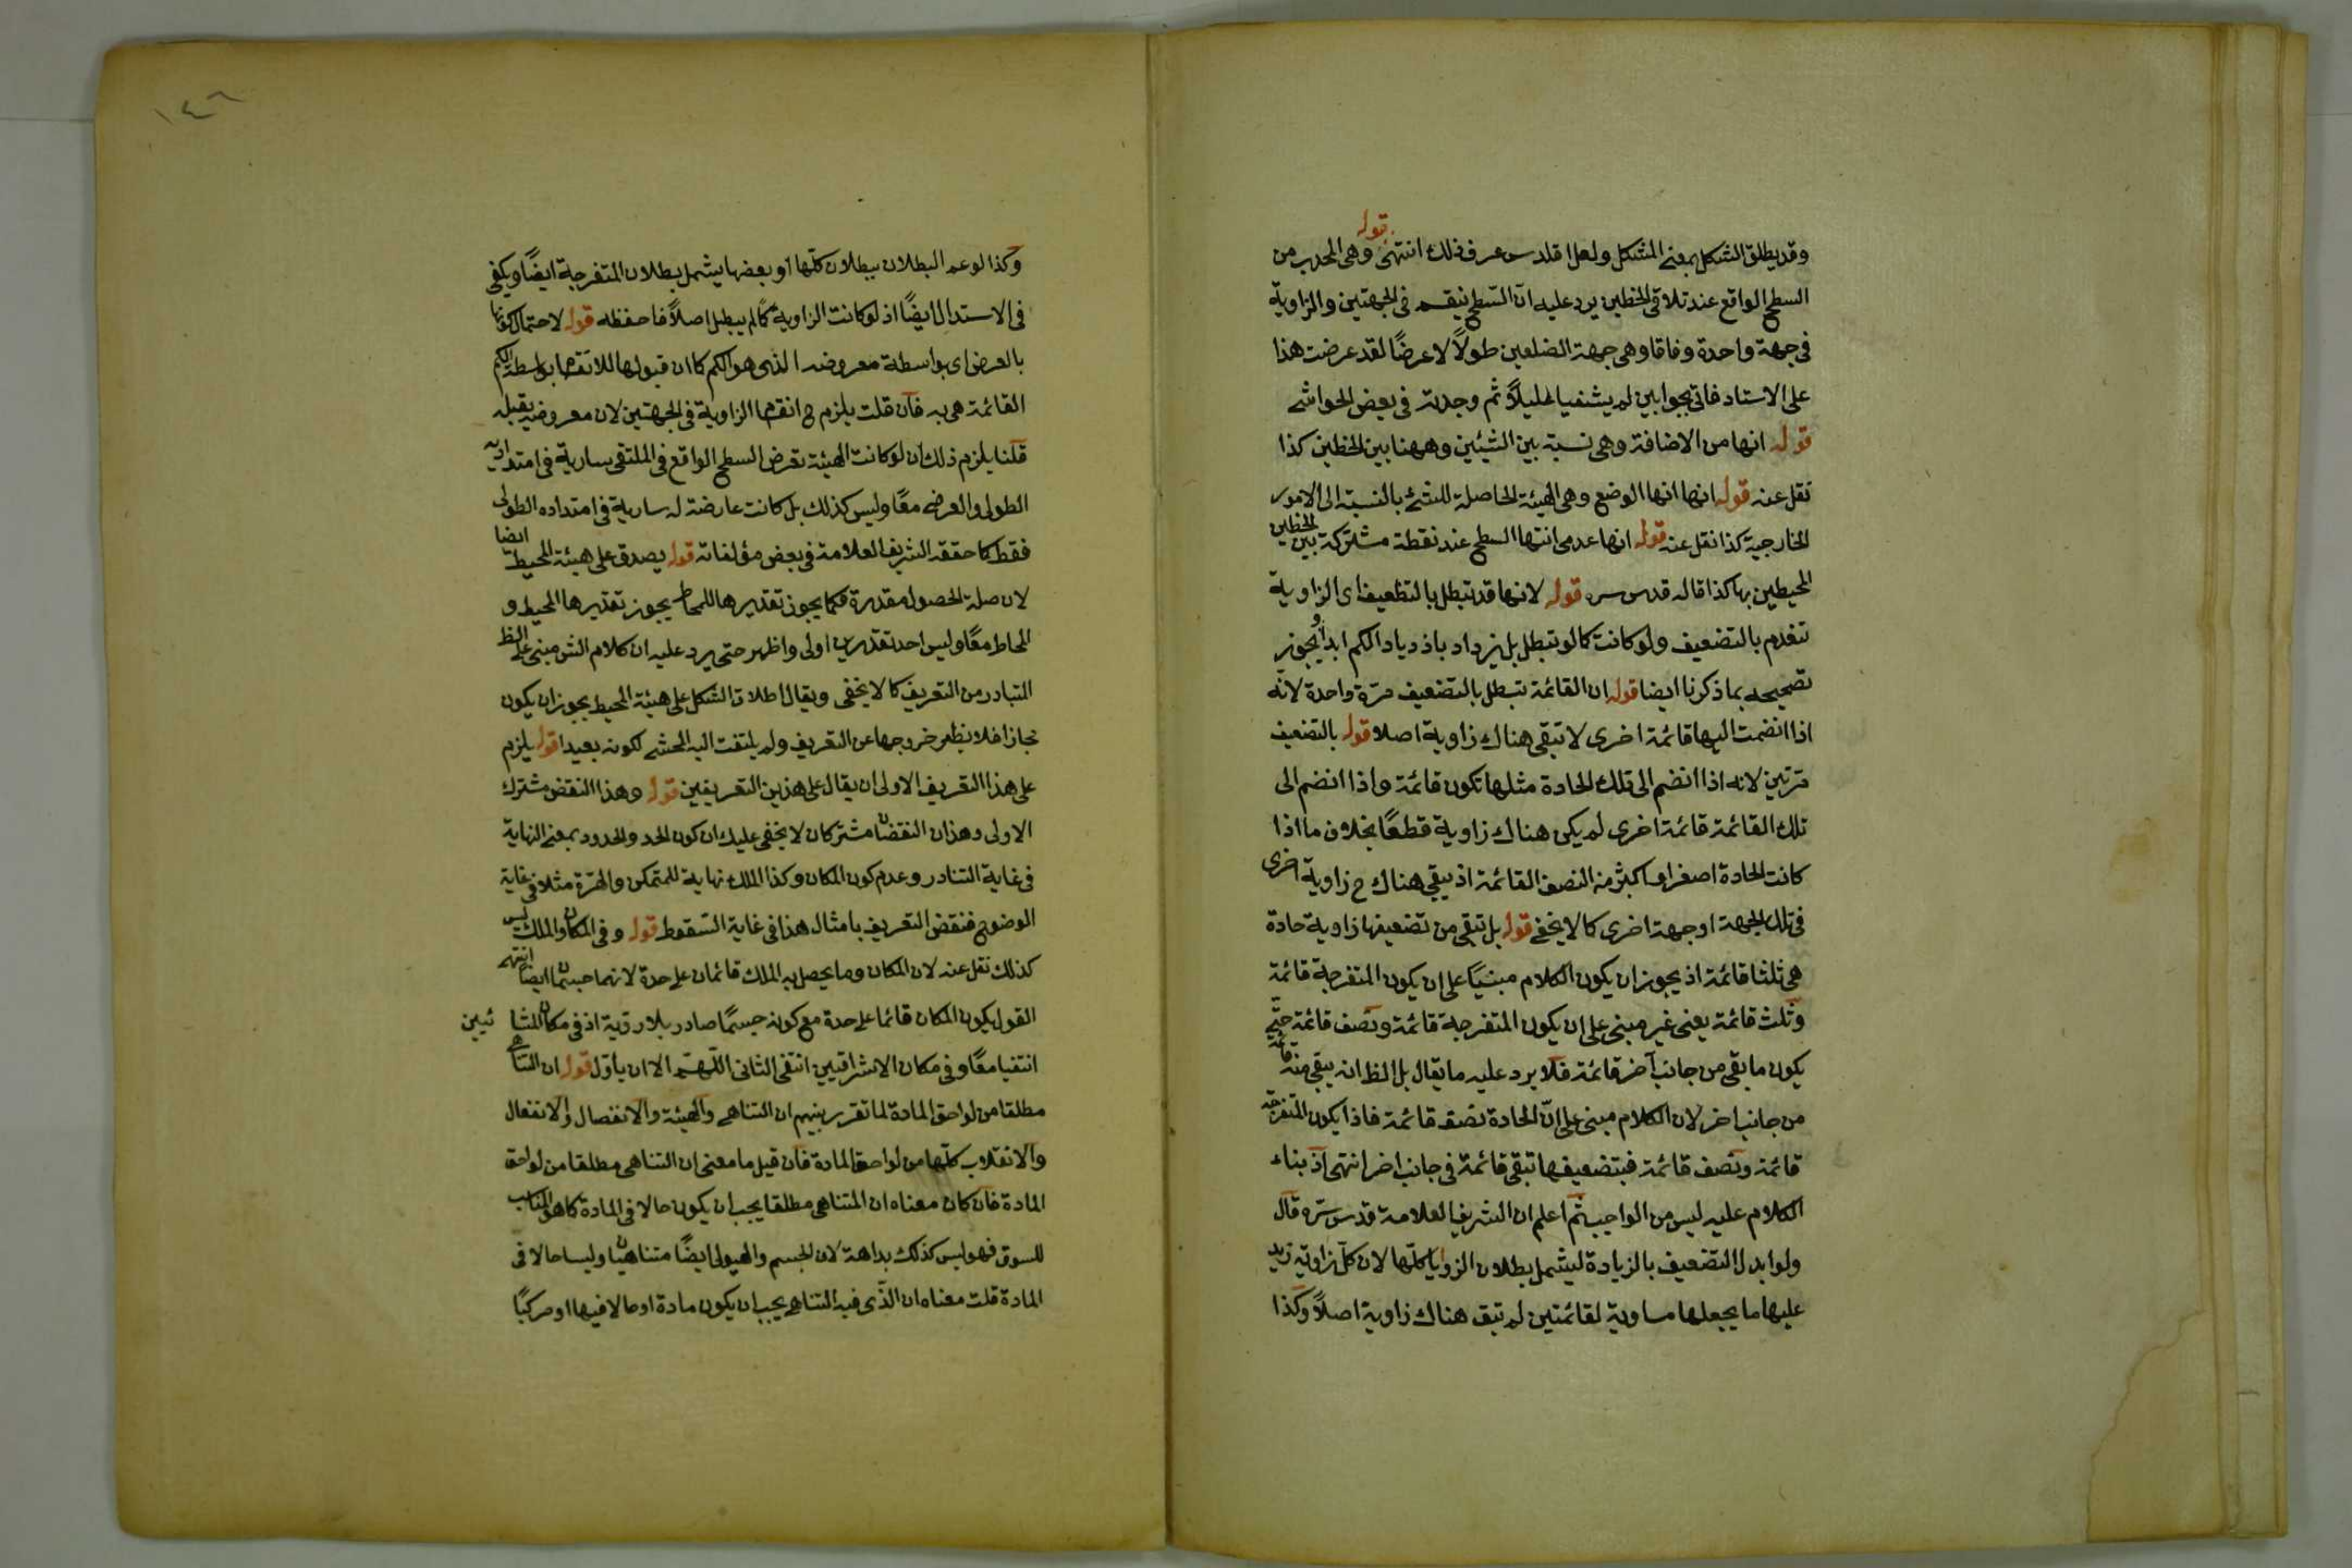 قوله
وقد يطلق الشكل بمعنى المشكل ولعل اقلدس عرف ذلك انتهى وهى المحدب من
السطح الواقع عند تلاقى الخطين يرد عليه ان السطح ينقسم فى الجهتين والزاوية
فى جهة واحدة وفاقا وهى جهة الضلعين طولاً لا عرضًا لقد عرضت هذا
على الاستاد فاتى بجوابين لم يشفيا الغليلاً ثم وجدت فى بعض الحواشى
قوله انها من الاضافة وهى نسبة بين الشيئين وههنا بين الخطين كذا
نقل عنه قوله انها انها الوضع وهى الهيئة الحاصلة للشئ بالنسبة الى الامور
الخارجية كذا نقل عنه قوله انها عدمى انتهاء السطح عند نقطة مشتركة بين الخطين
المحيطين بها كذا قاله قدس سره قوله لانها قد تبطل بالتضعيف اى الزاوية
تنعدم بالتضعيف ولو كانت كما لو تبطل بل يزداد باذدياد الكم ابداً ويجوز
تصحيحه بما ذكرنا ايضا قوله ان القائمة تبطل بالتضعيف مرّة واحدة لانّه
اذا انضمت اليها قائمة اخرى لا تبقى هناك زاوية اصلا قوله بالتضعيف
مرّتين لانه اذا انضم الى تلك الحادة مثلها تكون قائمة واذا انضم الى
تلك القائمة قائمة اخرى لم يكن هناك زاوية قطعًا بخلاف ما اذا
كانت الحادة اصغر او اكبر من النصف القائمة اذ يبقى هناك ح زاوية اخرى
فى تلك الجهة او جهة اخرى كما لا يخفى قوله بل تبقى من تضعيفها زاوية حادة
هى ثلثا قائمة اذ يجوز ان يكون الكلام مبنيًا على ان يكون المنفرجة قائمة
وثلث قائمة يعنى غير مبنى على ان يكون المنفرجة قائمة ونصف قائمة حتّى
يكون ما بقى من جانب آخر قائمة فلا يرد عليه ما يقال بل الظ انه يبقى منه قائمة
من جانب اخر لان الكلام مبنى على انّ الحادة نصف قائمة فاذا يكون المنفرجة
قائمة ونصف قائمة فبتضعيفها تبقى قائمة فى جانب اخر انتهى اذ بناء
الكلام عليه ليس من الواجب ثم اعلم ان الشريف العلامة قدس سرّه قال
ولو ابدل التضعيف بالزيادة ليشمل بطلان الزوايا كلّها لان كلّ زاوية زيد
عليها ما يجعلها مساوية لقائمتين لم تبق هناك زاوية اصلاً وكذا
١٤٦
وكذا لو عمم البطلان ببطلان كلّها او بعضها يشمل بطلان المنفرجة ايضًا ويكفى
فى الاستدال ايضًا اذ لو كانت الزاوية كمًا لم يبطل اصلاً فاحفظه قوله لاحتمال كونها
بالعرض اى بواسطة معروضه الذى هو الكم كما ان قبولها للانقسام بواسطة الكم
القائمة هى به فان قلت يلزم ح انقسام الزاوية فى الجهتين لان معروضه يقبله
قلنا يلزم ذلك ان لو كانت الهيئة تعرض السطح الواقع فى الملتقى سارية فى امتداديه
الطولى والعرضى معًا وليس كذلك بل كانت عارضة له سارية فى امتداده الطولى
فقط كما حققه الشريف العلامة فى بعض مؤلفاته قوله يصدق على هيئة المحيط ايضا
لان صلة الحصول مقدرة فكما يجوز تقديرها للمحاط يجوز تقديرها المحيط و
المحاط معًا وليس احد تقديرين اولى واظهر حتى يرد عليه ان كلام الش مبنى على الظ
المتبادر من التعريف كما لا يخفى ويقال اطلاق الشكل على هيئة المحيط يجوز ان يكون
مجازا فلا يظهر خروجها عن التعريف ولم يلتفت اليه المحشى لكونه بعيدا قوله يلزم
على هذا التعريف الاولى ان يقال على هذين التعريفين قوله وهذا النقض مشترك
الاولى وهذان النقضان مشتركان لا يخفى عليك ان كون الحد والحدود بمعنى النهاية
فى غاية التنادر وعدم كون المكان وكذا الملك نهاية للمتمكن والهرّة مثلا فى غاية
الوضوح فنقض التعريف بامثال هذا فى غاية السّقوط قوله وفى المكان والملك ليس
كذلك نقل عنه لان المكان وما يحصل به الملك قائمان على حدة لانهما جسمان ايضًا انتهى
القول بكون المكان قائما على حدة مع كونه جسمًا صادر بلا رويّة اذ فى مكان المشائيين
انتفيا معًا وفى مكان الاشراقيين انتفى الثانى اللّهمّ الا ان يأول قوله ان التناهى
مطلقا من لواحق المادة لما تقرر بينهم ان التناهى والهيئة والانفصال والانفعال
والانقلاب كلّها من لواحق المادة فان قيل ما معنى ان التناهى مطلقا من لواحق
المادة فان كان معناه ان المتناهى مطلقا يجب ان يكون حالا فى المادة كما هو المناسب
للسوق فهو ليس كذلك بداهة لان الجسم والهيولى ايضًا متناهيان وليسا حالا فى
المادة قلت معناه ان الذّى فيه التناهى يجب ان يكون مادة او حالا فيها او مركبًا